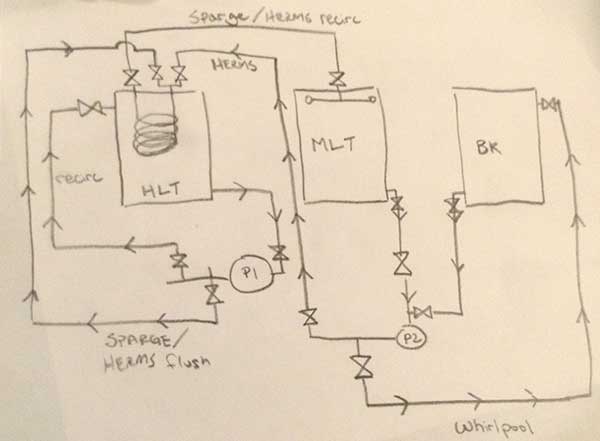 Sparge/HERMS recirc
HERMS
MLT
BK
recirc
HLT
P1
P2
SPARGE/
HERMS flush
Whirlpool